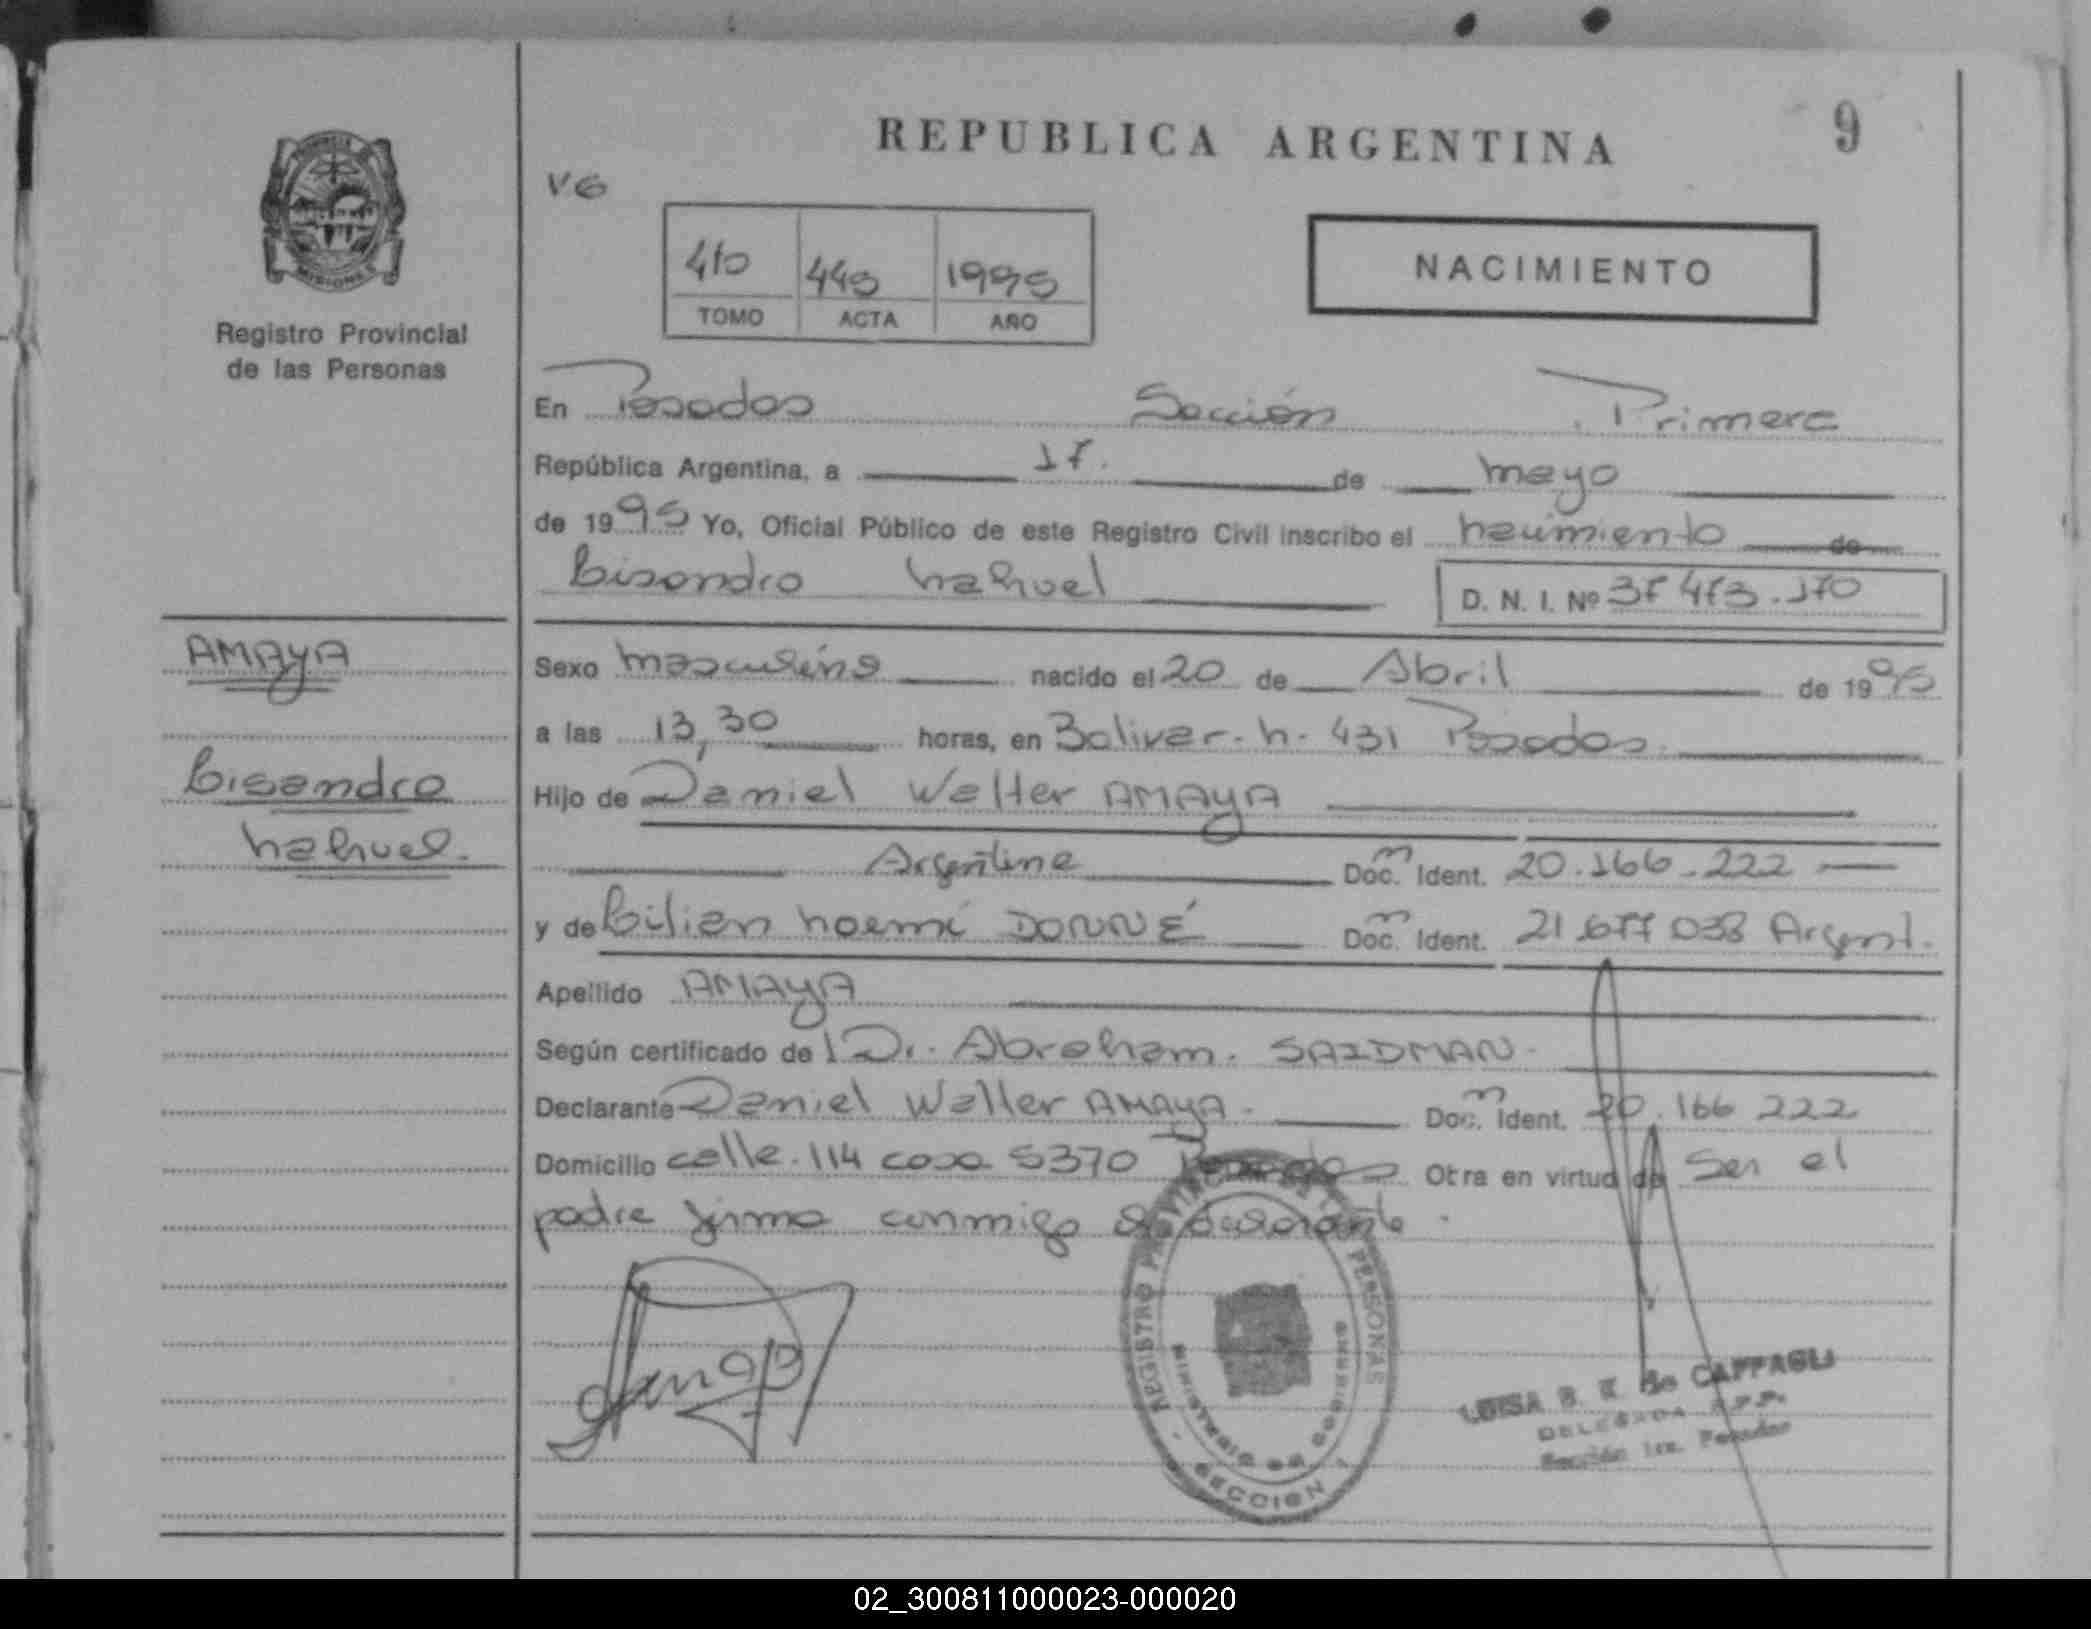 REPUBLICA ARGENTINA
9
V6
410 445 1995
TOMO ACTA AÑO
NACIMIENTO
MISIONES
Registro Provincial
de las Personas
En Posadas Sección Primera
República Argentina, a 17. de mayo
de 1995 Yo, Oficial Público de este Registro Civil inscribo el nacimiento de
Lisandro Nahuel D. N. I. Nº 37 473.170
AMAYA
Lisandro
Nahuel.
Sexo masculino nacido el 20 de Abril de 1995
a las 13,30 horas, en Bolivar. n. 431 Posadas.
Hijo de Daniel Walter AMAYA
Argentina Doc. Ident. 20.166.222
y de Lilian Noemí DONNÉ Doc. Ident. 21.677 038 Argent.
Apellido AMAYA
Según certificado de Dr. Abraham. SAIDMAN.
Declarante Daniel Walter AMAYA. Doc. Ident. 20.166 222
Domicilio calle. 114 casa 5370 Posadas Otra en virtud de Ser el
padre firma conmigo el declarante.
REGISTRO PROVINCIAL DE LAS PERSONAS
MINISTERIO DE GOBIERNO
SECCION 1
LUISA B. de CAFFAGLI
DELEGADA R.P.P.
Sección 1ra. Posadas
02_300811000023-000020